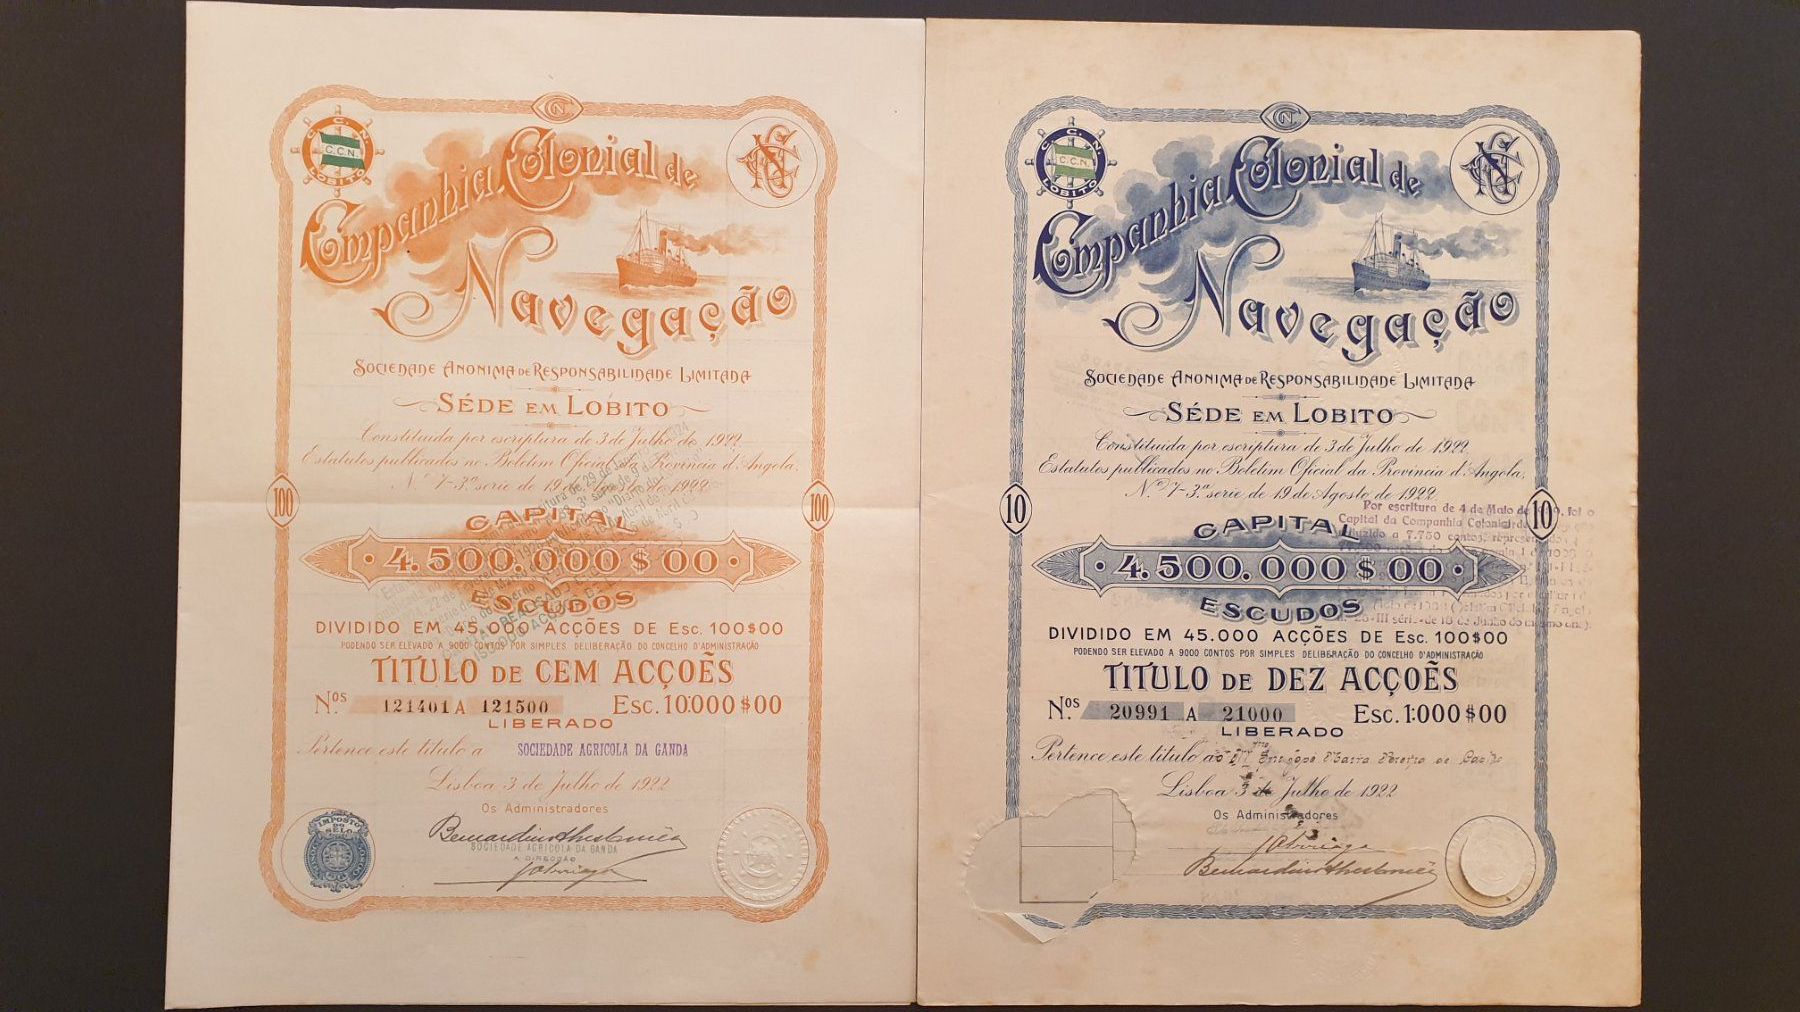 C.C.N.
C. C. N.
LOBITO
CCN
CCN
Companhia Colonial de
Navegação
SOCIEDADE ANONIMA DE RESPONSABILIDADE LIMITADA
SÉDE EM LOBITO
Constituida por escriptura de 3 de Julho de 1922
Estatutos publicados no Boletim Oficial da Provincia d'Angola.
N.º 7-3.ª serie de 19 de Agosto de 1922
100
100
CAPITAL
4.500.000$00
ESCUDOS
DIVIDIDO EM 45.000 ACÇÕES DE Esc. 100$00
PODENDO SER ELEVADO A 9000 CONTOS POR SIMPLES DELIBERAÇÃO DO CONCELHO D'ADMINISTRAÇÃO
TITULO DE CEM ACÇOẼS
N.os 121401 A 121500 Esc. 10:000$00
LIBERADO
Pertence este titulo a SOCIEDADE AGRICOLA DA GANDA
Lisboa 3 de Julho de 1922
Os Administradores
SOCIEDADE AGRICOLA DA GANDA
A DIRECÇÃO
IMPOSTO
DO
SELO
C.C.N.
C. C. N.
LOBITO
CCN
CCN
Companhia Colonial de
Navegação
SOCIEDADE ANONIMA DE RESPONSABILIDADE LIMITADA
SÉDE EM LOBITO
Constituida por escriptura de 3 de Julho de 1922
Estatutos publicados no Boletim Oficial da Provincia d'Angola.
N.º 7-3.ª serie de 19 de Agosto de 1922
10
10
Por escritura de 4 de Maio de
Capital da Companhia Colonial de
7.750 contos,
CAPITAL
4.500.000$00
ESCUDOS
III série - de 18 de Junho do mesmo ano).
DIVIDIDO EM 45.000 ACÇÕES DE Esc. 100$00
PODENDO SER ELEVADO A 9000 CONTOS POR SIMPLES DELIBERAÇÃO DO CONCELHO D'ADMINISTRAÇÃO
TITULO DE DEZ ACÇOẼS
N.os 20991 A 21000 Esc. 1:000$00
LIBERADO
Pertence este titulo ao
Lisboa 3 de Julho de 1922
Os Administradores